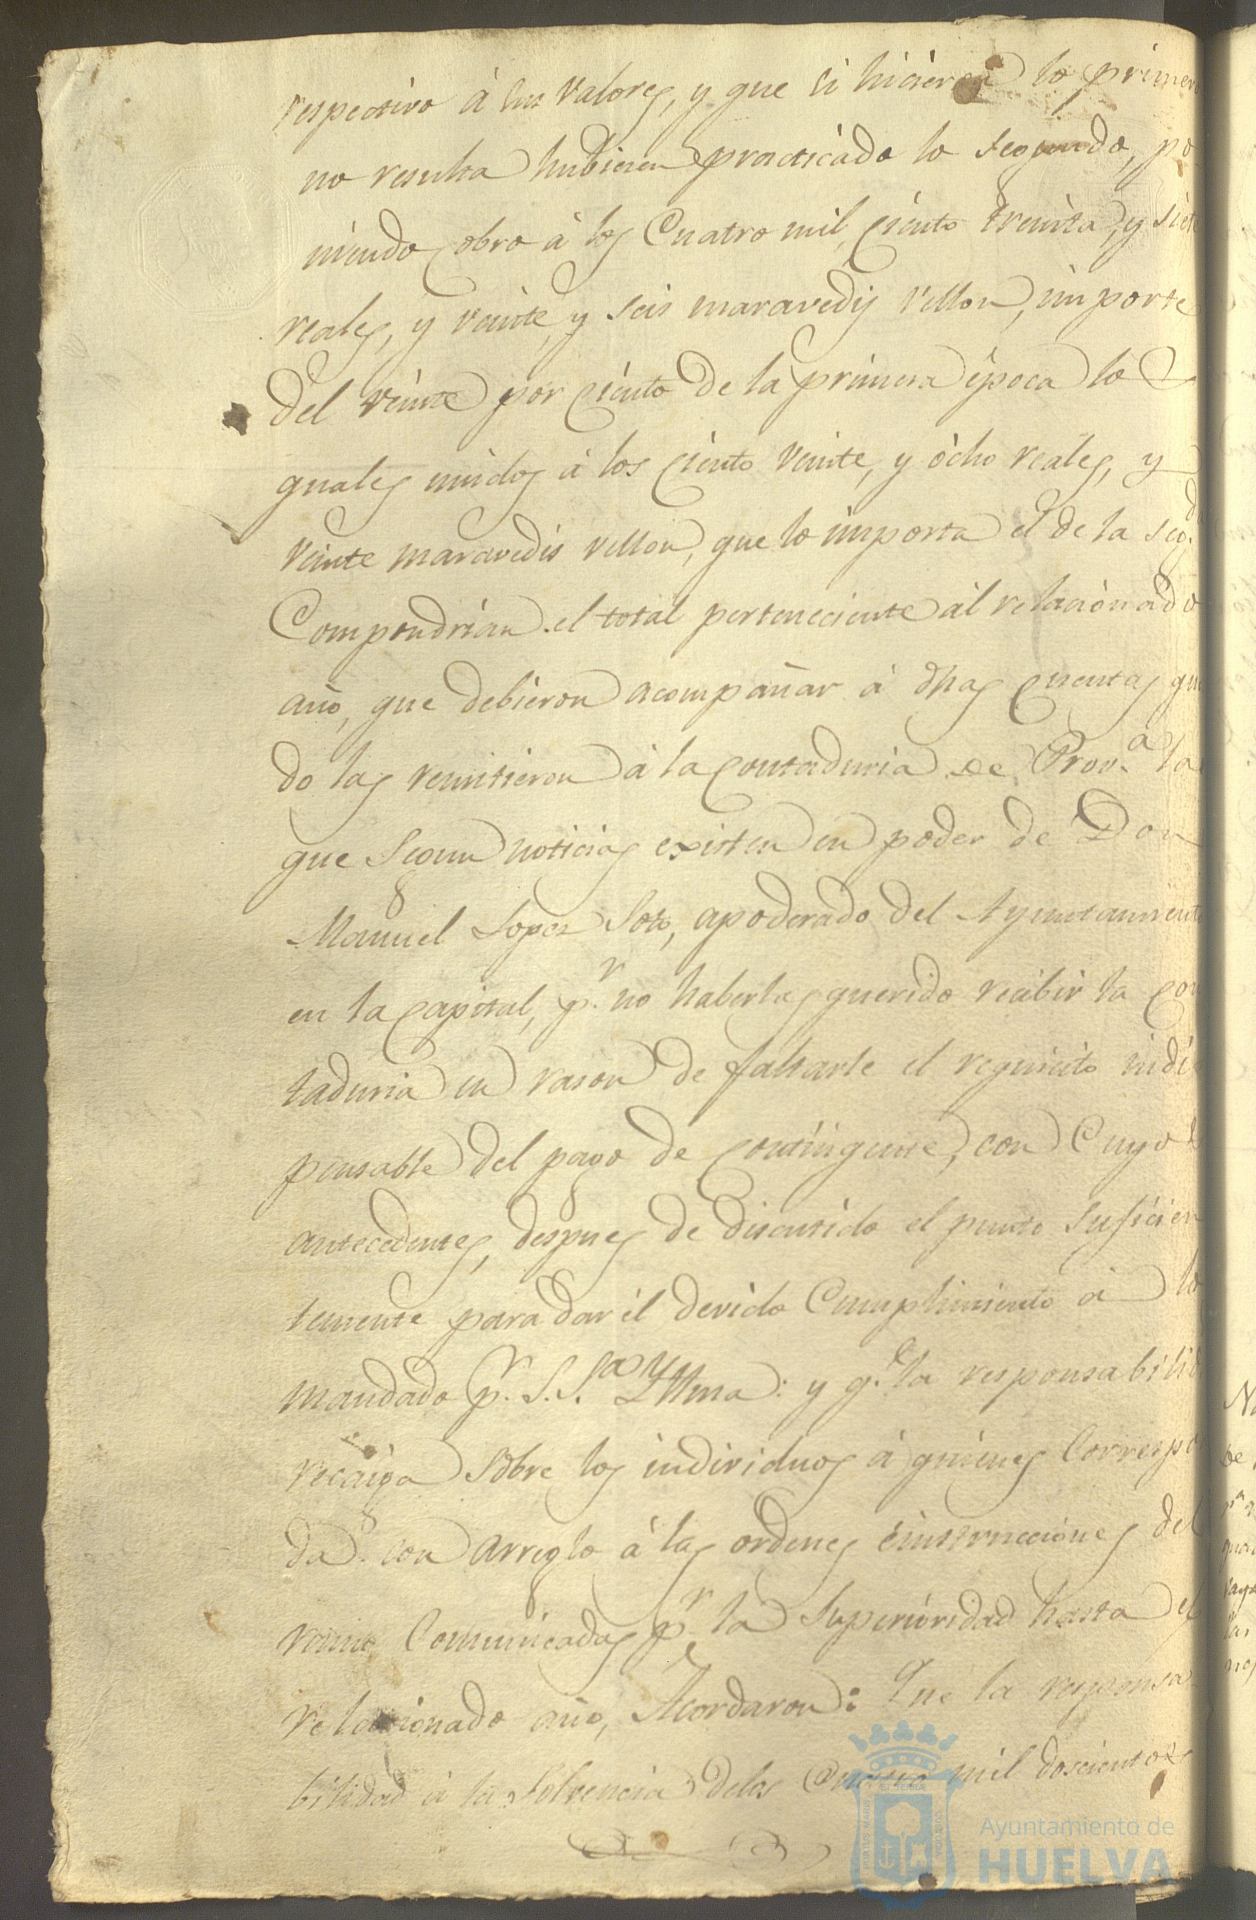 respectivo á sus valores, y que si hicieron lo primer
no resulta hubiesen practicado lo segundo, po
niendo cobro á los Cuatro mil, ciento treinta, y siet
reales, y veinte, y seis maravedis vellon, importe
del veinte por ciento de la primera época lo
quales unidos á los ciento veinte, y ócho reales, y
veinte maravedis vellon, que lo importa el de la seg.da
Compondrian el total perteneciente ál relacionado
año, que debieron acompañar á dhas cuentas qu
do las remitieron á la contaduria de Prov.a la
que segun noticias existen en poder de Don
Manuel Lopez Soto, apoderado del Ayuntamient
en la capital, p.r no haberlas querido recibir la con
taduria en rason de faltarle el requisito indis
pensable del pago de contingente, con Cuyo
antecedentes, despues de discutido el punto suficien
temente para dar él devido Cumplimiento á lo
mandado p.r S. S.a Yllma: y q.e la responsabilid
recaiga sobre los individuos á quienes Correspo
da con arreglo á las ordenes é instrucciones del
ramo Comunicadas p.r la Superioridad hasta el
relacionado año, Acordaron: Que la responsa
bilidad á la solvencia delos Cuatro mil doscientos
Ayuntamiento de
HUELVA